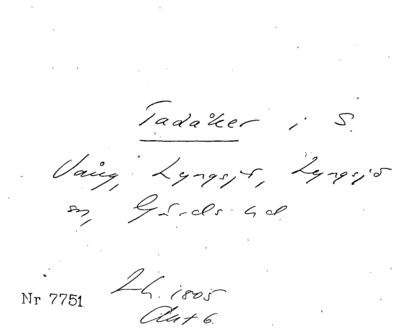 Tadåker i S.
Vång, Lyngsjö, Lyngsjö
sn, Gärds hd.
Lh. 1805
Akt 6.
Nr 7751